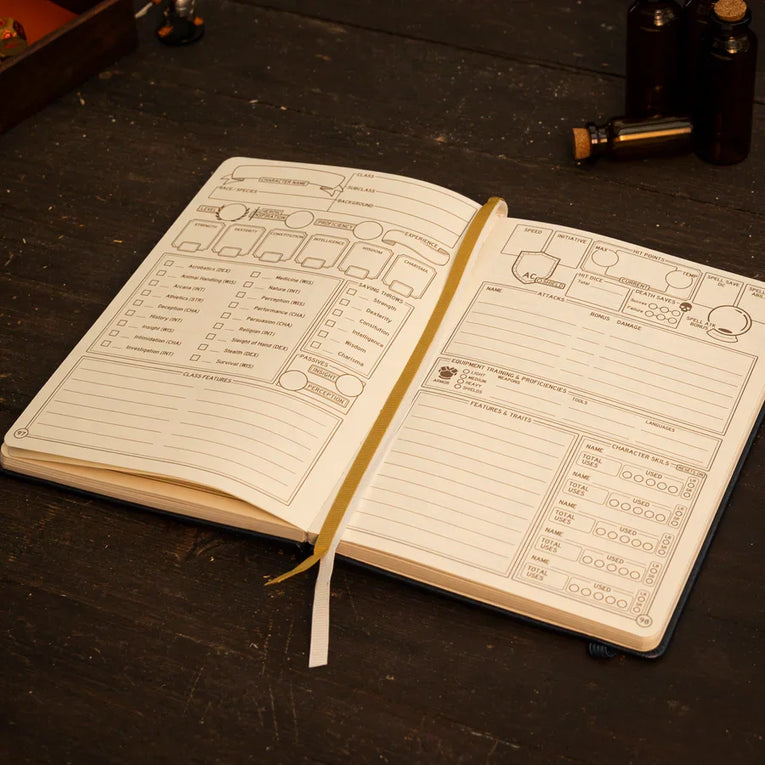 CHARACTER NAME
CLASS
SUBCLASS
RACE / SPECIES
BACKGROUND
LEVEL
INSPIRATION
PROFICIENCY
EXPERIENCE
STRENGTH
DEXTERITY
CONSTITUTION
INTELLIGENCE
WISDOM
CHARISMA
Acrobatics (DEX)
Animal Handling (WIS)
Arcana (INT)
Athletics (STR)
Deception (CHA)
History (INT)
Insight (WIS)
Intimidation (CHA)
Investigation (INT)
Medicine (WIS)
Nature (INT)
Perception (WIS)
Performance (CHA)
Persuasion (CHA)
Religion (INT)
Sleight of Hand (DEX)
Stealth (DEX)
Survival (WIS)
SAVING THROWS
Strength
Dexterity
Intelligence
Wisdom
Charisma
PASSIVES
INSIGHT
PERCEPTION
CLASS FEATURES
97
SPEED
INITIATIVE
AC
SHIELD
HIT POINTS
MAX
CURRENT
TEMP
HIT DICE
Total
DEATH SAVES
Success
Failure
SPELL SAVE
DC
SPELL ATK
BONUS
NAME
ATTACKS
BONUS
DAMAGE
EQUIPMENT TRAINING & PROFICIENCIES
ARMOR
LIGHT
MEDIUM
HEAVY
SHIELDS
WEAPONS
TOOLS
LANGUAGES
FEATURES & TRAITS
CHARACTER SKILS
NAME
TOTAL
USES
USED
NAME
TOTAL
USES
USED
NAME
TOTAL
USES
USED
NAME
TOTAL
USES
USED
NAME
TOTAL
USES
USED
98